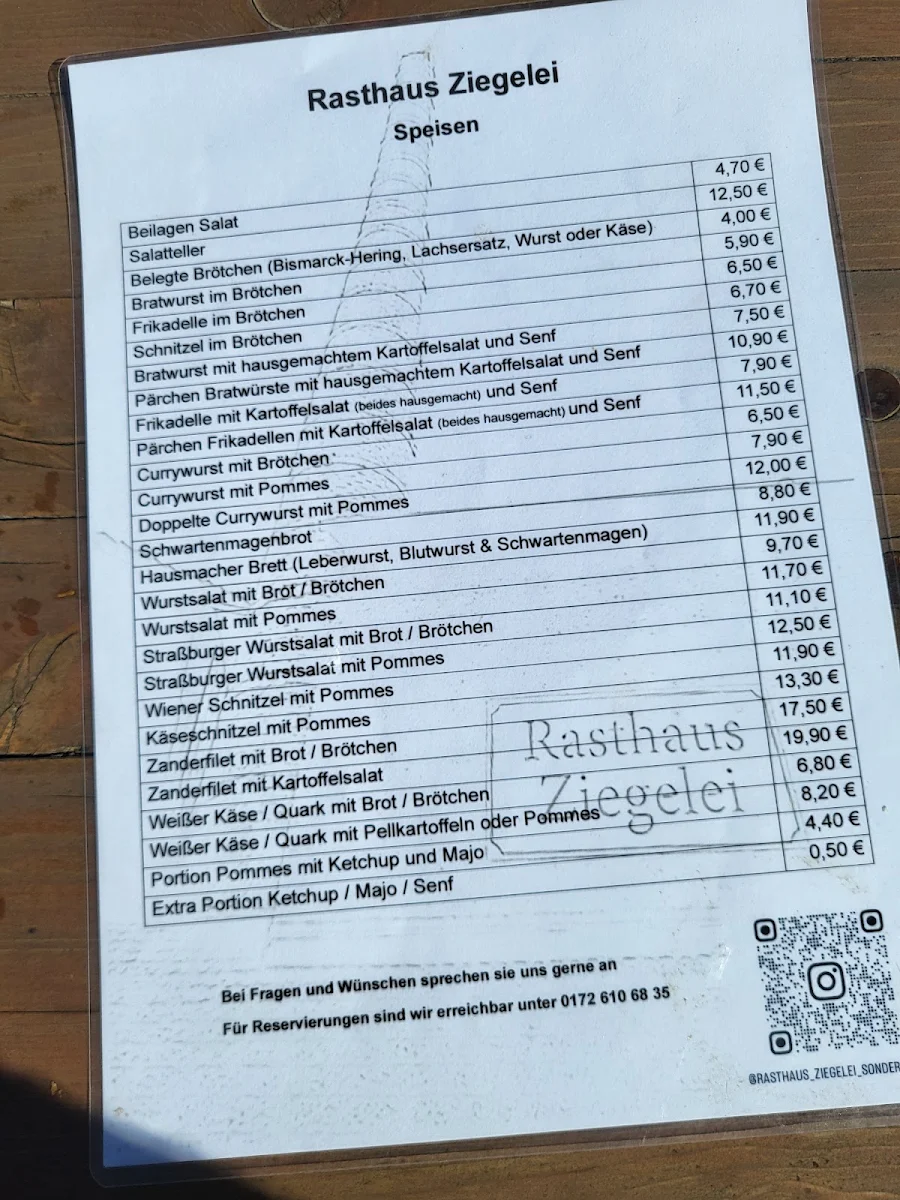 Rasthaus Ziegelei
Speisen
Beilagen Salat 4,70 €
Salatteller 12,50 €
Belegte Brötchen (Bismarck-Hering, Lachsersatz, Wurst oder Käse) 4,00 €
Bratwurst im Brötchen 5,90 €
Frikadelle im Brötchen 6,50 €
Schnitzel im Brötchen 6,70 €
Bratwurst mit hausgemachtem Kartoffelsalat und Senf 7,50 €
Pärchen Bratwürste mit hausgemachtem Kartoffelsalat und Senf 10,90 €
Frikadelle mit Kartoffelsalat (beides hausgemacht) und Senf 7,90 €
Pärchen Frikadellen mit Kartoffelsalat (beides hausgemacht) und Senf 11,50 €
Currywurst mit Brötchen 6,50 €
Currywurst mit Pommes 7,90 €
Doppelte Currywurst mit Pommes 12,00 €
Schwartenmagenbrot 8,80 €
Hausmacher Brett (Leberwurst, Blutwurst & Schwartenmagen) 11,90 €
Wurstsalat mit Brot / Brötchen 9,70 €
Wurstsalat mit Pommes 11,70 €
Straßburger Wurstsalat mit Brot / Brötchen 11,10 €
Straßburger Wurstsalat mit Pommes 12,50 €
Wiener Schnitzel mit Pommes 11,90 €
Käseschnitzel mit Pommes 13,30 €
Zanderfilet mit Brot / Brötchen 17,50 €
Zanderfilet mit Kartoffelsalat 19,90 €
Weißer Käse / Quark mit Brot / Brötchen 6,80 €
Weißer Käse / Quark mit Pellkartoffeln oder Pommes 8,20 €
Portion Pommes mit Ketchup und Majo 4,40 €
Extra Portion Ketchup / Majo / Senf 0,50 €
Rasthaus
Ziegelei
Bei Fragen und Wünschen sprechen sie uns gerne an
Für Reservierungen sind wir erreichbar unter 0172 610 68 35
@RASTHAUS_ZIEGELEI_SONDER